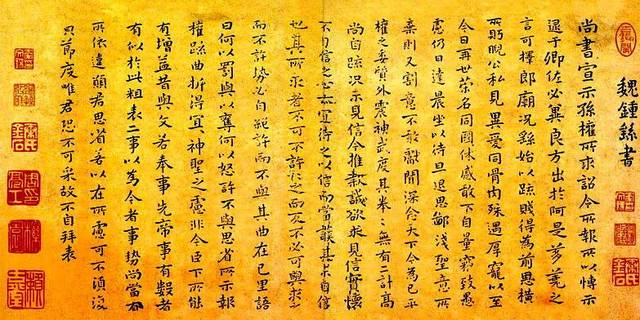 魏鍾繇書
尚書宣示孫權所求詔令所報所以博示
逮于卿佐必冀良方出於阿是芻蕘之
言可擇郎廟況繇始以疏賤得為前恩橫
所盻睨公私見異愛同骨肉殊遇厚寵以至
今日再世榮名同國休慼敢不自量竊致愚
慮仍日達晨坐以待旦退思鄙淺聖意所
棄則又割意不敢獻聞深念天下今為已平
權之委質外震神武度其拳拳無有二計高
尚自疏況未見信今推款誠欲求見信實懷
不自信之心亦宜待之以信而當護其未自信
也其所求者不可不許許之而反不必可與求之
而不許勢必自絕許而不與其曲在己里語
曰何以罰與以奪何以怒許不與思省所示報
權疏曲折得宜宜神聖之慮非今臣下所能
有增益昔與文若奉事先帝事有數者
有似於此粗表二事以為今者事勢尚當有
所依違願君思省若以在所慮可不須復
只節度唯君恐不可采故不自拜表